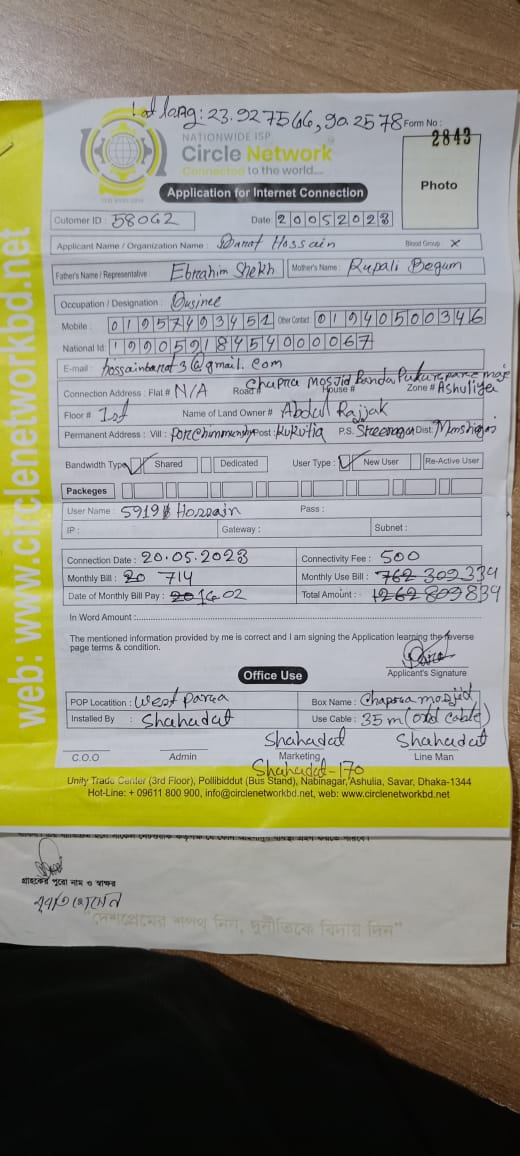 Lat long: 23.927566, 90.2578
Form No :
2843
NATIONWIDE ISP
Circle Network
Connected to the world....
Photo
Application for Internet Connection
Cutomer ID : 58062 Date: 20052023
Applicant Name / Organization Name : Barat Hossain Blood Group : x
Father's Name / Representative : Ebrahim Shekh Mother's Name : Rupali Begum
Occupation / Designation :
Mobile : 01957493451 Other Contact 01940500346
National Id : 19905918454000067
E-mail : hossainbarat3@gmail.com
Connection Address : Flat # N/A Road # Chapra Mosjid House # Zone # Ashuliya
Floor # 1st Name of Land Owner # Abdul Rajjak
Permanent Address : Vill : Post : Kukutia P.S. Sreenagar Dist.
Bandwidth Type ✓ Shared Dedicated User Type : ✓ New User Re-Active User
Packeges
User Name : 5919 Hossain Pass :
IP : Gateway : Subnet :
Connection Date : 20.05.2023 Connectivity Fee : 500
Monthly Bill : 20 714 Monthly Use Bill : 762 309 334
Date of Monthly Bill Pay : Total Amount : 1262 809 834
In Word Amount :
The mentioned information provided by me is correct and I am signing the Application learning the reverse
page terms & condition.
Applicant's Signature
Office Use
POP Locatition : West Parra Box Name : Chapra mosjid
Installed By : Shahadat Use Cable : 35 m (old cable)
Shahadat Shahadat
C.O.O Admin Marketing Line Man
Shahadat-170
Unity Trade Center (3rd Floor), Pollibiddut (Bus Stand), Nabinagar, Ashulia, Savar, Dhaka-1344
Hot-Line: + 09611 800 900, info@circlenetworkbd.net, web: www.circlenetworkbd.net
web: www.circlenetworkbd.net
গ্রাহকের পুরো নাম ও স্বাক্ষর
"দেশপ্রেমের শপথ নিন, দুর্নীতিকে বিদায় দিন"